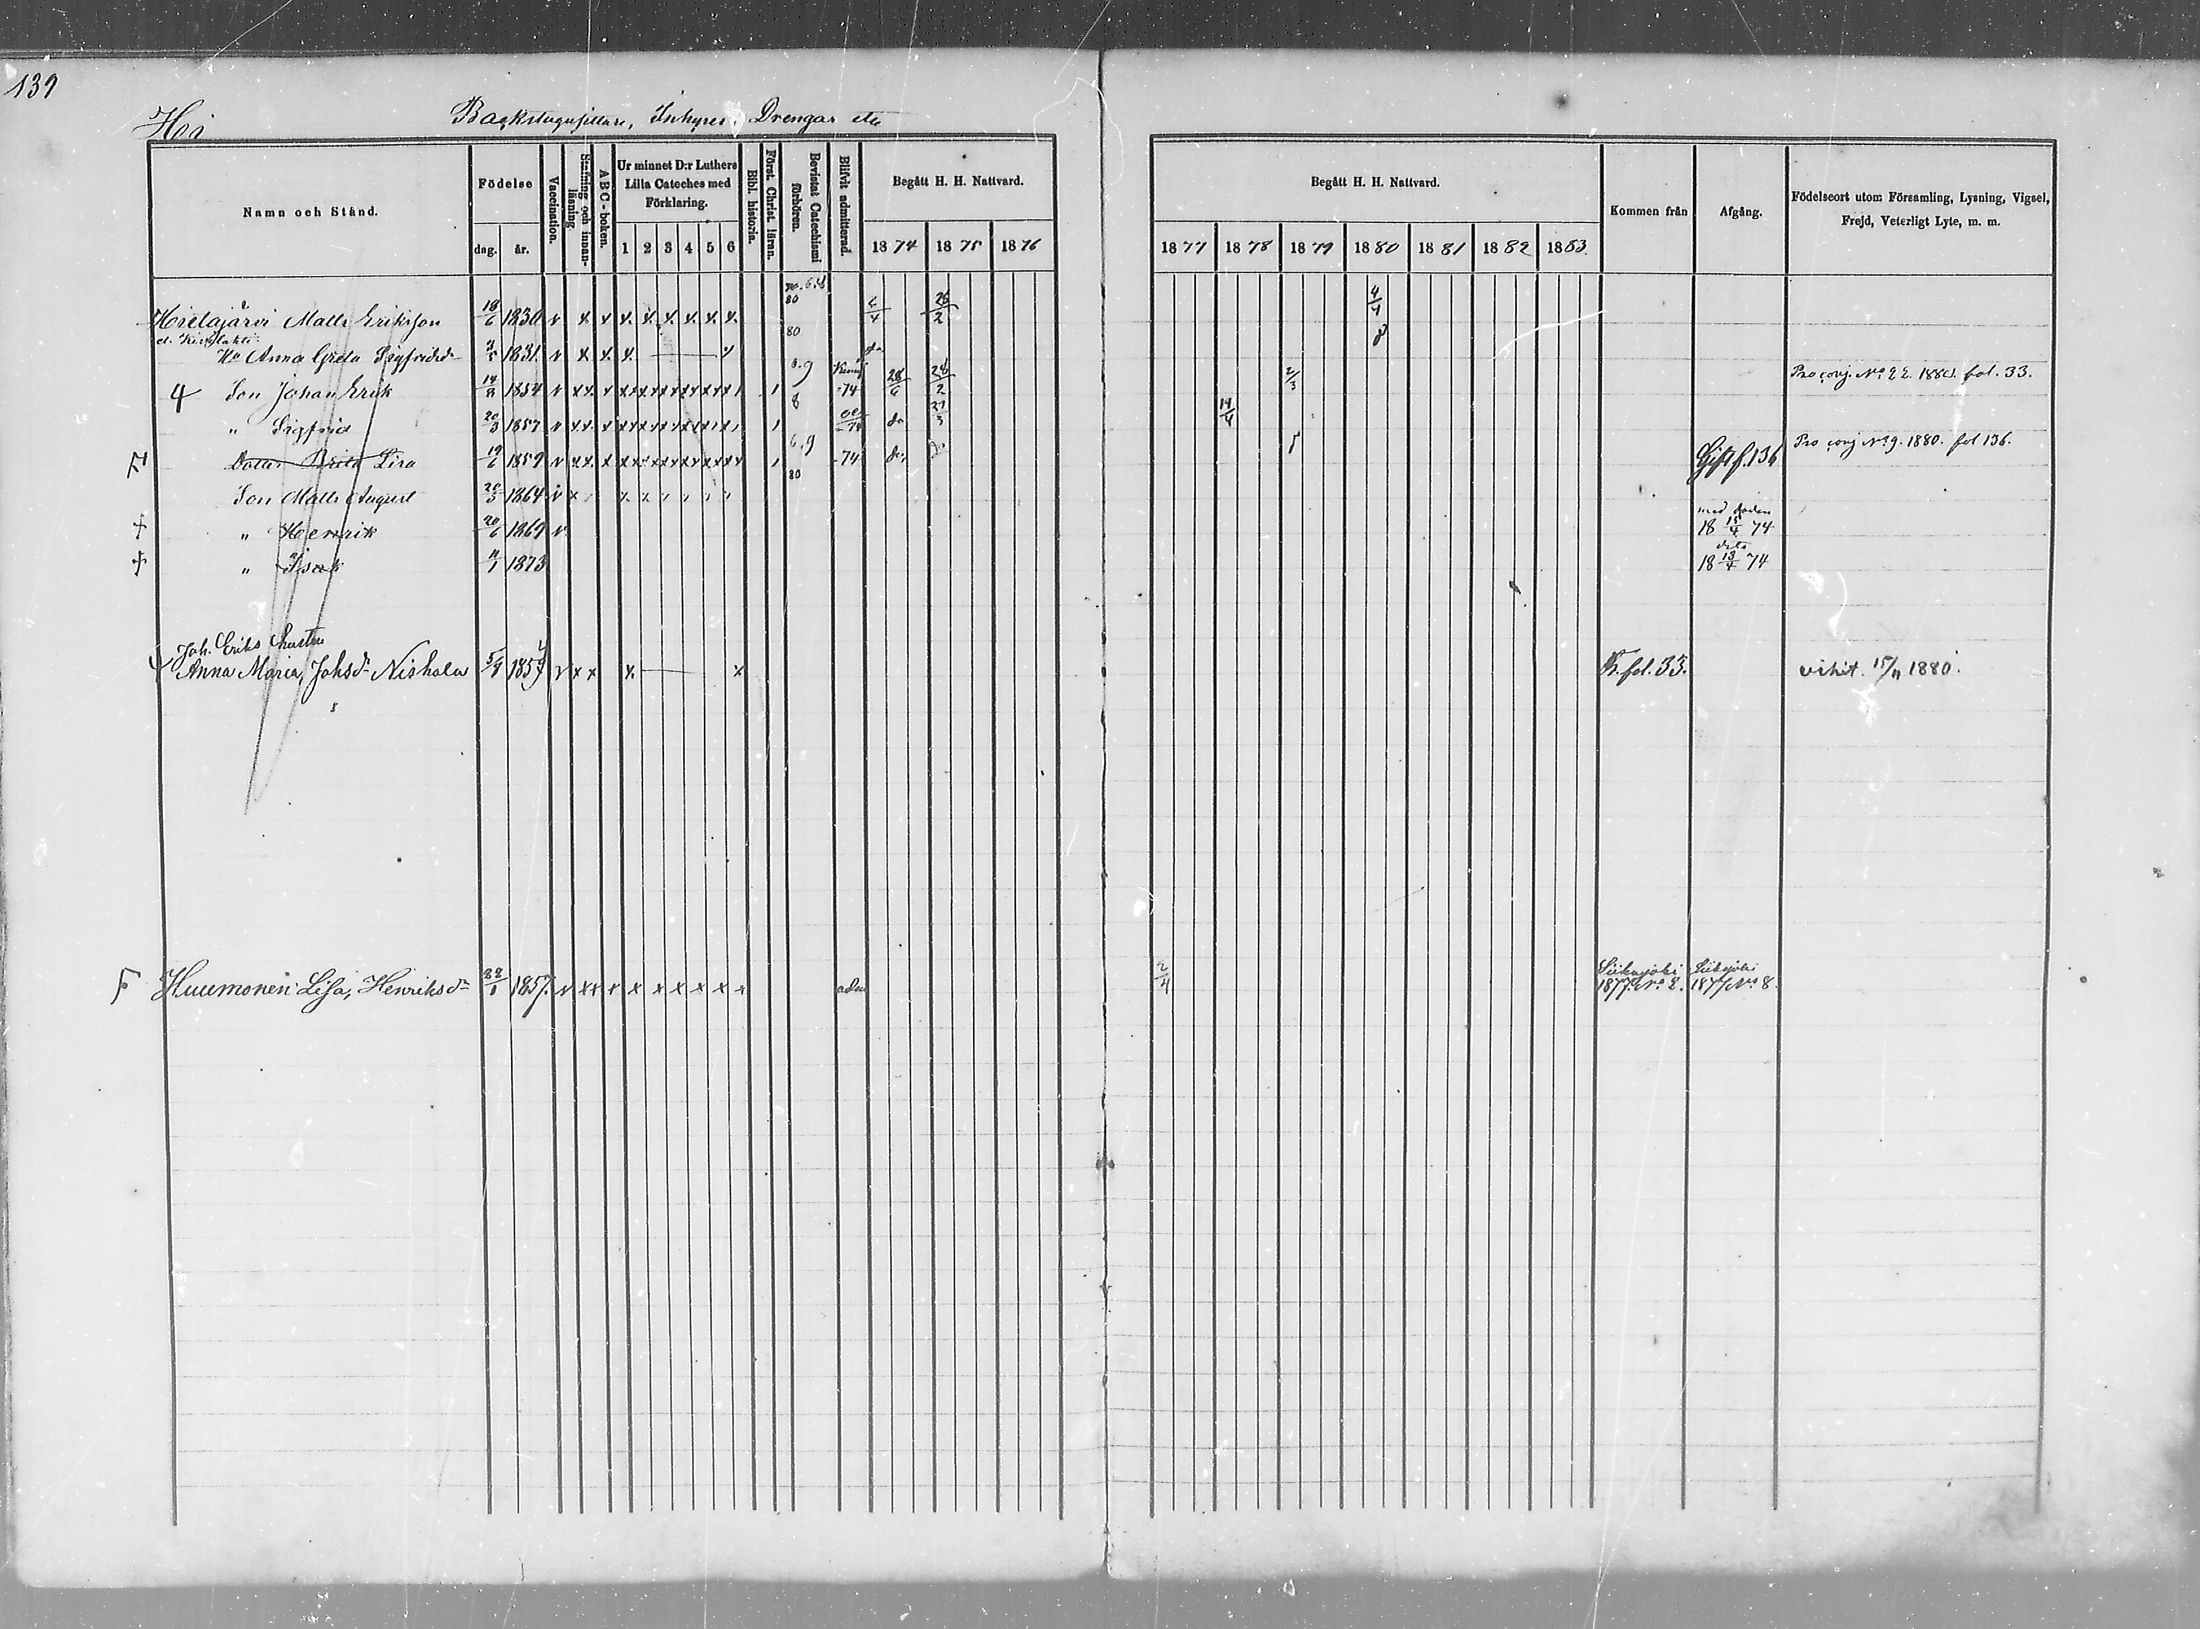 139
Hi
Backstugusittare, Inhyses, Drengar etc
Namn och Stånd.
Födelse
dag. år.
Vaccination.
Stafning och innanläsning
ABC-boken.
Ur minnet D:r Luthers Lilla Cateches med Förklaring.
1 2 3 4 5 6
Bibl. historia.
Först. Christ. läran.
Bevistat Catechismi förhören.
Blifvit admitterad.
Begått H. H. Nattvard.
1874 1875 1876
Begått H. H. Nattvard.
1877 1878 1879 1880 1881 1882 1883.
Kommen från
Afgång.
Födelseort utom Församling, Lysning, Vigsel, Frejd, Veterligt Lyte, m. m.
80
Hietajärvi Matts Eriksson 18/6 1830 v x x x. x. x. x. x. x. 4/4 26/2 4/4
80
Hu Anna Greta Sigfridsdr 1831. v x x. x. do
4 Son Johan Erik 14/8 1854 v xx. x 1 -74 28/6 28/2 2/3 Pro conj. No 22. 1880. fol. 33.
8
" Sigfrid 20/3 1857 v xx. x 1 do 21/3 14/4
Dotter Brita Lisa 19/6 1859 v xx. x 1 -74 do, do Gift f. 136 Pro conj No 9. 1880. fol 136.
80
Son Matts August 20/3 1864 v x
† " Henrik 20/6 1869 v med döden 18 15/4 74
† " Isak 1873 dito 18 13/4 74
Joh. Eriks hustru
Anna Maria, Johsdr Niskala 5/9 1859 v x x x. x Fr. fol. 33. vihit. 15/11 1880.
F Huumonen Lisa, Henriksdr 1857. v xx x x x x x x x adm 2/4 Siikajoki 1877. No 2. Siikajoki 1877 No 8.